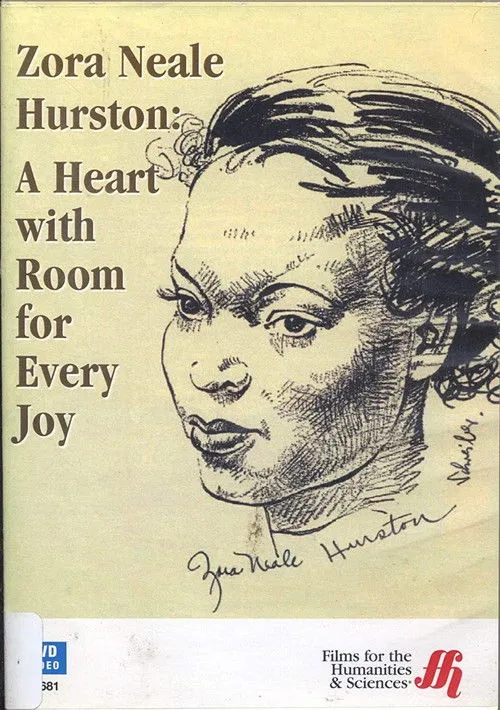 Zora Neale
Hurston:
A Heart
with
Room
for
Every
Joy
Zora Neale Hurston
VD
DEO
681
Films for the
Humanities
& Sciences®
ffh